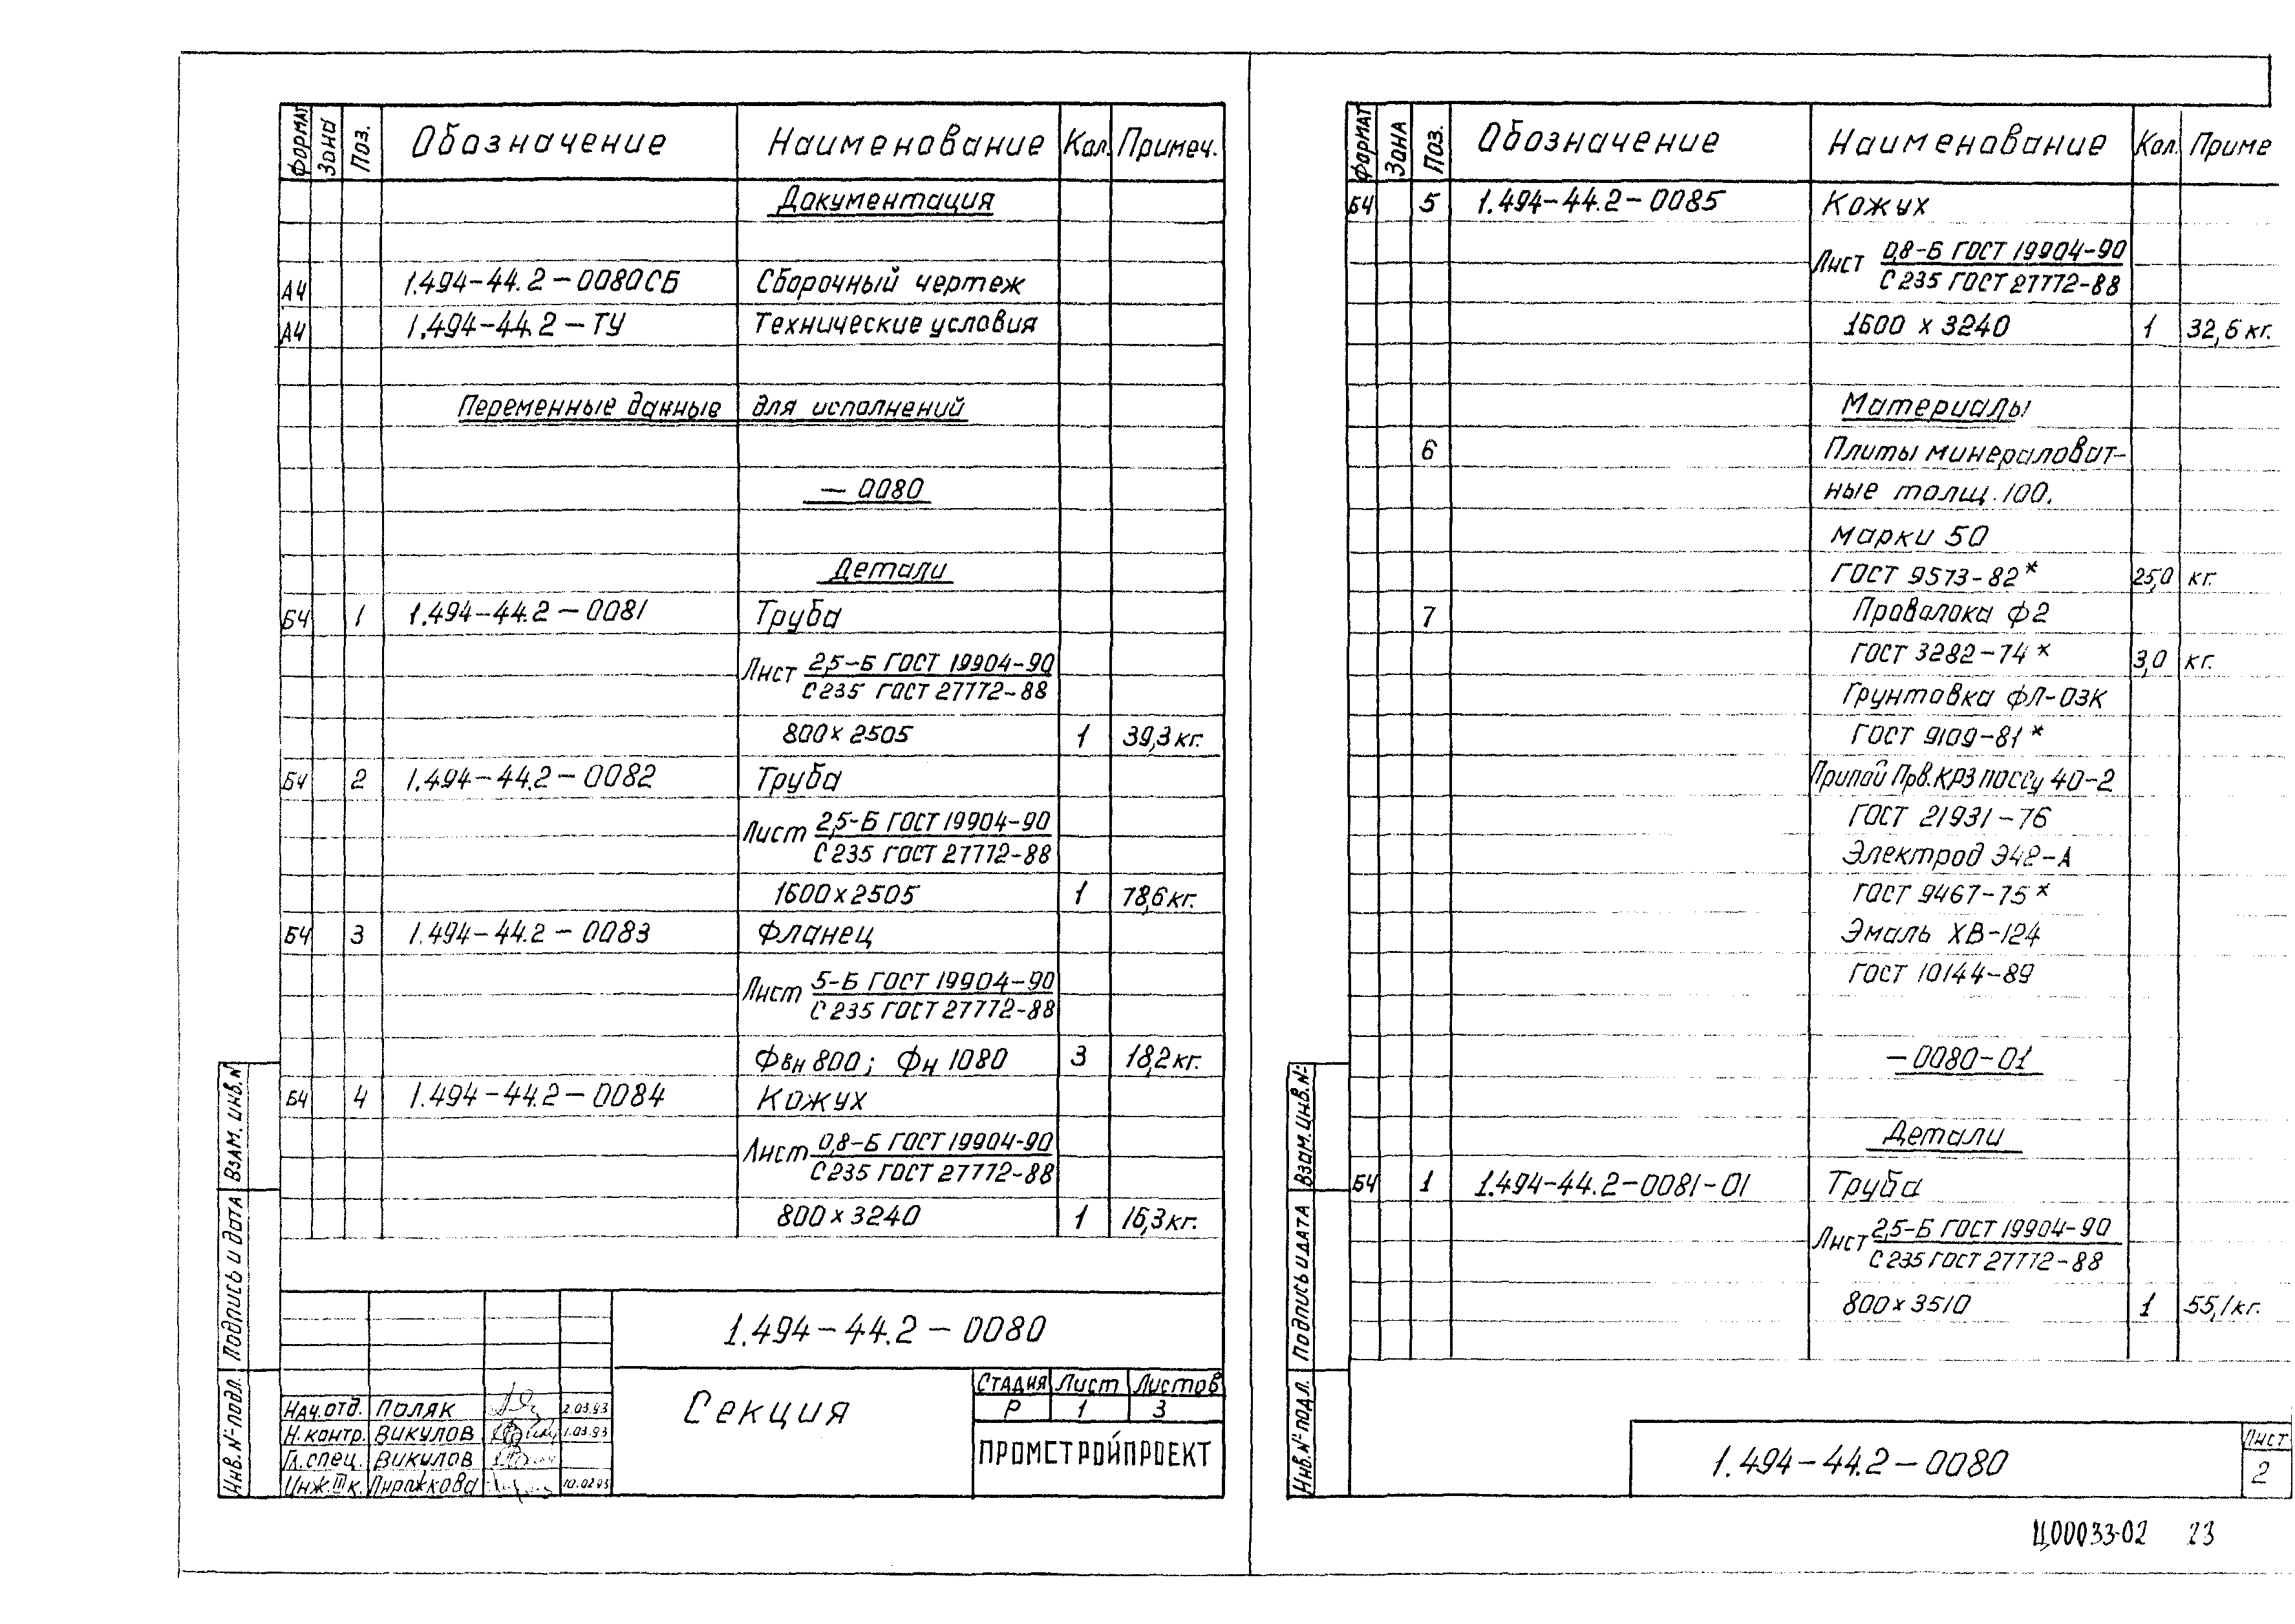 Формат Зона Поз. Обозначение Наименование Кол. Примеч.
Документация
А4 1.494-44.2-0080СБ Сборочный чертеж
А4 1.494-44.2-ТУ Технические условия
Переменные данные для исполнений
— 0080
Детали
БЧ 1 1.494-44.2-0081 Труба
Лист 2,5-Б ГОСТ 19904-90
С235 ГОСТ 27772-88
800х2505 1 39,3кг.
БЧ 2 1.494-44.2-0082 Труба
Лист 2,5-Б ГОСТ 19904-90
С235 ГОСТ 27772-88
1600х2505 1 78,6кг.
БЧ 3 1.494-44.2-0083 Фланец
Лист 5-Б ГОСТ 19904-90
С235 ГОСТ 27772-88
Фвн 800; Фн 1080 3 18,2кг.
БЧ 4 1.494-44.2-0084 Кожух
Лист 0,8-Б ГОСТ 19904-90
С235 ГОСТ 27772-88
800х3240 1 16,3кг.
Взам. инв. №
Подпись и дата
Инв. № подл.
1.494-44.2-0080
Нач.отд. Поляк 2.03.93
Н.контр. Викулов 1.03.93
Гл.спец. Викулов
Инж.IIIк. 10.02.93
Секция
Стадия Лист Листов
Р 1 3
ПРОМСТРОЙПРОЕКТ
Формат Зона Поз. Обозначение Наименование Кол. Приме
БЧ 5 1.494-44.2-0085 Кожух
Лист 0,8-Б ГОСТ 19904-90
С235 ГОСТ 27772-88
1600 х 3240 1 32,6кг.
Материалы
6 Плиты минераловат-
ные толщ.100.
марки 50
ГОСТ 9573-82* 25,0 кг.
7 Проволока Ф2
ГОСТ 3282-74* 3,0 кг.
Грунтовка ФЛ-03К
ГОСТ 9109-81*
Припой Прв.КР3 ПОССу 40-2
ГОСТ 21931-76
Электрод Э42-А
ГОСТ 9467-75*
Эмаль ХВ-124
ГОСТ 10144-89
—0080-01
Детали
БЧ 1 1.494-44.2-0081-01 Труба
Лист 2,5-Б ГОСТ 19904-90
С235 ГОСТ 27772-88
800х3510 1 55,1кг.
Взам. инв. №
Подпись и дата
Инв. № подл.
1.494-44.2-0080
Лист
2
Ц00033-02 23